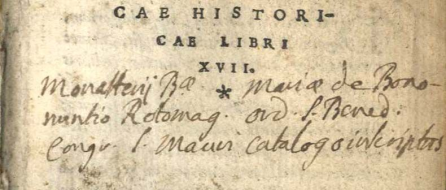 CAE HISTORI-
CAE LIBRI
XVII.
*
Monasterij Bæ Mariæ de Bono-
nuntio Rotomag. ord. S. Bened.
Congr. S. Mauri Catalogo inscriptus